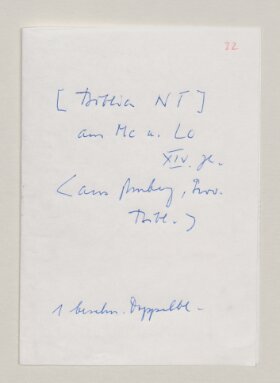 22
[Biblia NT]
aus Mc u. Lc
XIV. Jh.
(aus Amberg, Prov.
Bibl.)
1 beschn. Doppelbl.